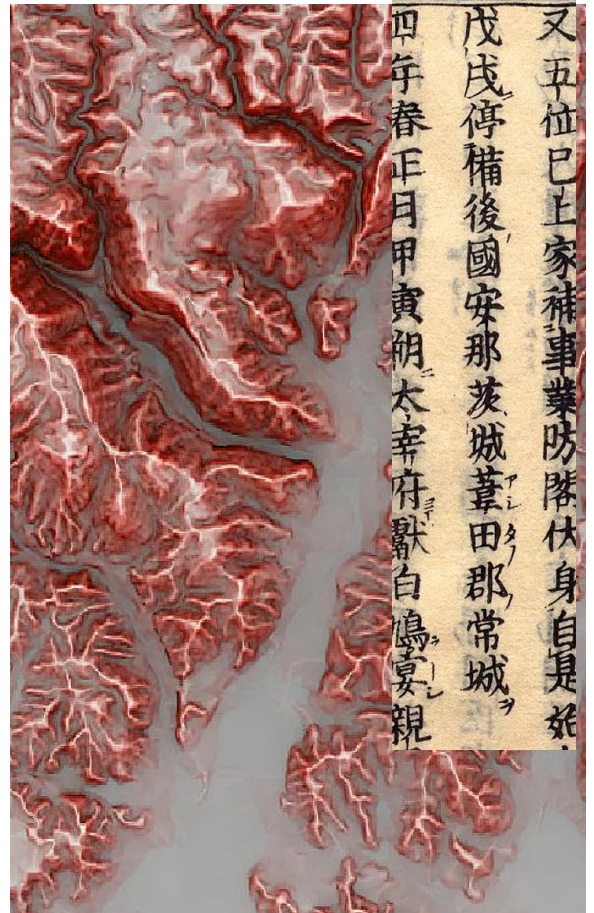 又五位已上家補事業防閤仗身自是始
戊戌停備後國安那茨城葦田郡常城
四年春正月甲寅朔太宰府獻白鳩宴親